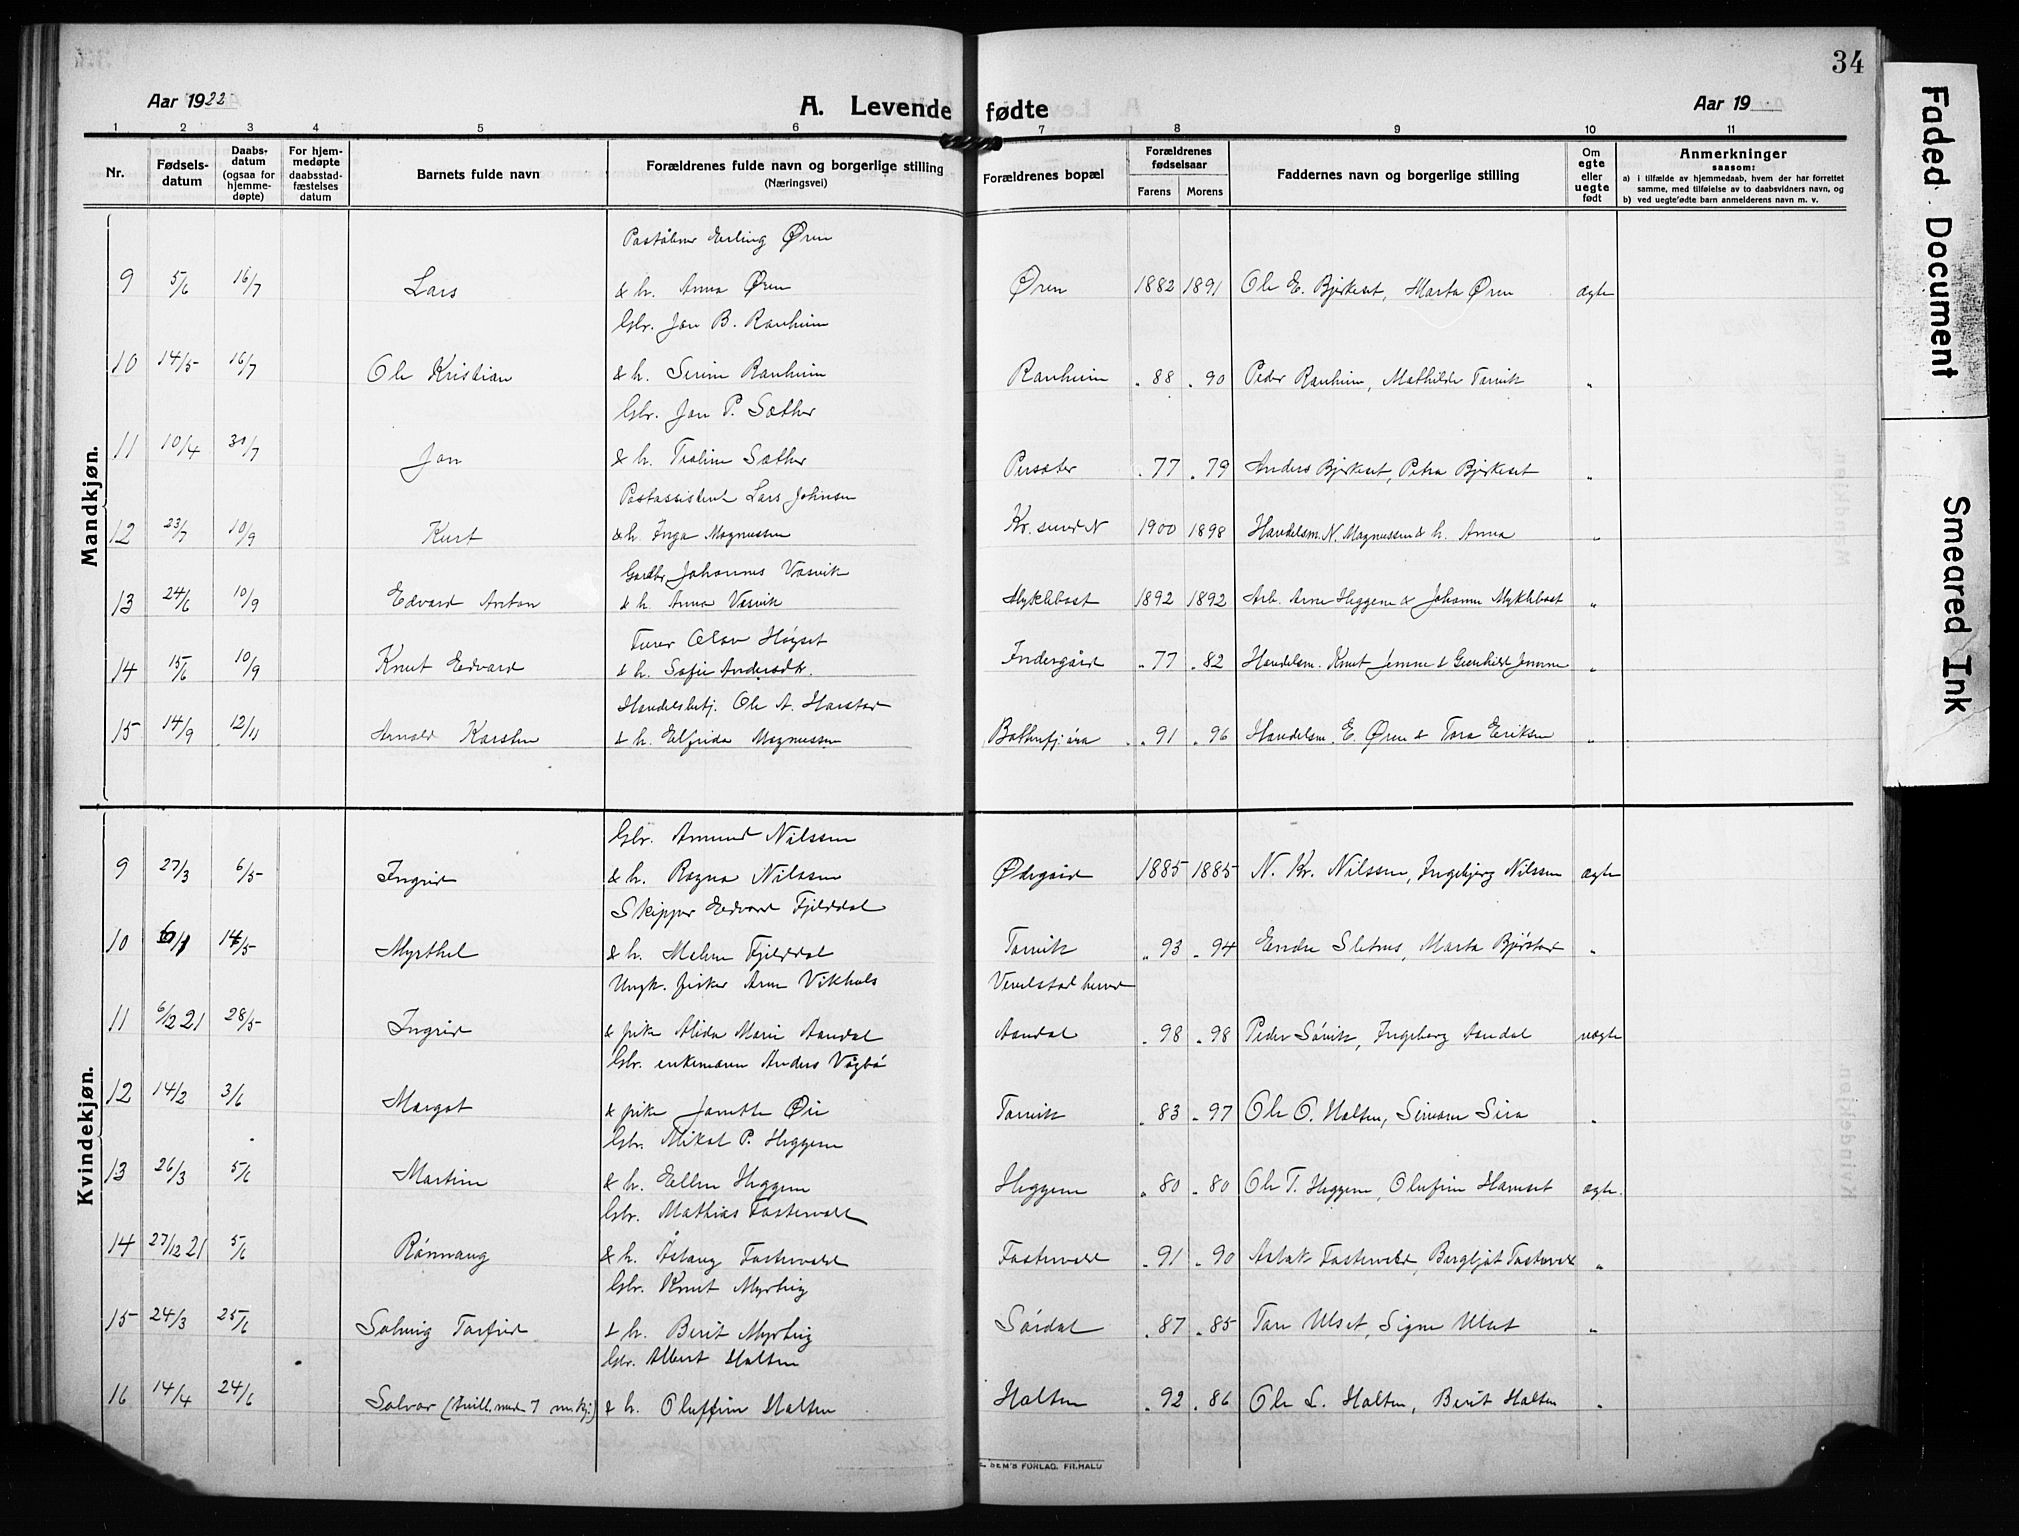 34
Aar 1922
A. Levende fødte
Aar 19
1 2 3 4 5 6 7 8 9 10 11
Nr.
Fødsels-
datum
Daabs-
datum
(ogsaa for
hjemme-
døpte)
For hjem-
medøpte
daabsstad-
fæstelses
datum
Barnets fulde navn
Forældrenes fulde navn og borgerlige stilling
(Næringsvei)
Forældrenes bopæl
Forældrenes
fødselsaar
Farens Morens
Faddernes navn og borgerlige stilling
Om
egte
eller
uegte
født
Anmerkninger
saasom:
a) i tilfælde av hjemmedaab, hvem der har forrettet
samme, med tilføielse av to daabsvidners navn, og
b) ved uegte fødte barn anmelderens navn m. v.
Mandkjøn.
Postaabner Erling Øren
9 5/6 16/7 Lars & h. Anna Øren Øren 1882 1891 Ole E. Bjerkeset, Marta Øren ægte
Gbr. Jon B. Ranheim
10 14/5 16/7 Ole Kristian & h. Serine Ranheim Ranheim " 88 " 90 Peder Ranheim, Mathilde Torvik "
Gbr. Jon P. Sæther
11 10/4 30/7 Jon & h. Traline Sæther Persæter " 77 " 79 Anders Bjerkeset, Petra Bjerkeset "
Postassistent Lars Johnsen
12 23/7 10/9 Kurt & h. Inga Magnussen Kr.sund N 1900 1898 Handelsm. N. Magnussen & h. Anna "
Gardbr. Johannes Vasvik
13 24/6 10/9 Edvard Anton & h. Anna Vasvik Myklebost 1892 1892 Arb. Arne Heggem & Johanna Myklebost "
Olav Høgset
14 15/6 10/9 Knut Edvard & h. Sofie Andersdtr. Indergård " 77 " 82 Handelsm. Knut Jemne & Gunhild Jemne "
Handelsbetj. Ole A. Harstad
15 14/9 12/11 Arnold Karsten & h. Elfrida Magnussen Batnfj.øra " 91 " 96 Handelsm. E. Øren & Tora Eriksen "
Kvindekjøn.
Gbr. Amund Nilssen
9 27/3 6/5 Ingrid & h. Ragna Nilssen Ødegård 1885 1885 N. Kr. Nilssen, Ingebjørg Nilssen ægte
Skipper Edvard Fjelddal
10 14/5 Myrthel & h. Malene Fjelddal Torvik " 93 " 94 Endre Sletnes, Marta Bjørstad "
Ungk. fisker Arne Vikhals Vevelstad herred
11 6/12 21 28/5 Ingrid & pike Alida Marie Aandal Aandal " 98 " 98 Peder Sørvik, Ingeborg Aandal uægte
Gbr. enkemann Anders Vågbø
12 14/2 3/6 Margot & pike Janette Øie Torvik " 83 " 97 Ole O. Halten, Simone Sira "
Gbr. Mikal P. Heggem
13 26/3 5/6 Martine & h. Ellen Heggem Heggem " 80 " 80 Ole T. Heggem, Olufine Hamset ægte.
Gbr. Mathias Fostervold
14 27/12 21 5/6 Rønnaug & h. Åslaug Fostervold Fostervold " 91 " 90 Aslak Fostervold, Bergljot Fostervold "
Gbr. Knut Myrbrig
15 24/3 25/6 Solveig Torfrid & h. Berit Myrbrig Sørdal " 87 " 85 Tore Ulset, Signe Ulset "
Gbr. Albert Halten
16 14/4 24/6 Solvor (tvill. med 7 m.kj.) & h. Oluffine Halten Halten " 92 " 86 Ole L. Halten, Berit Halten "
SEM'S FORLAG. FR.HALD
Faded Document
Smeared Ink